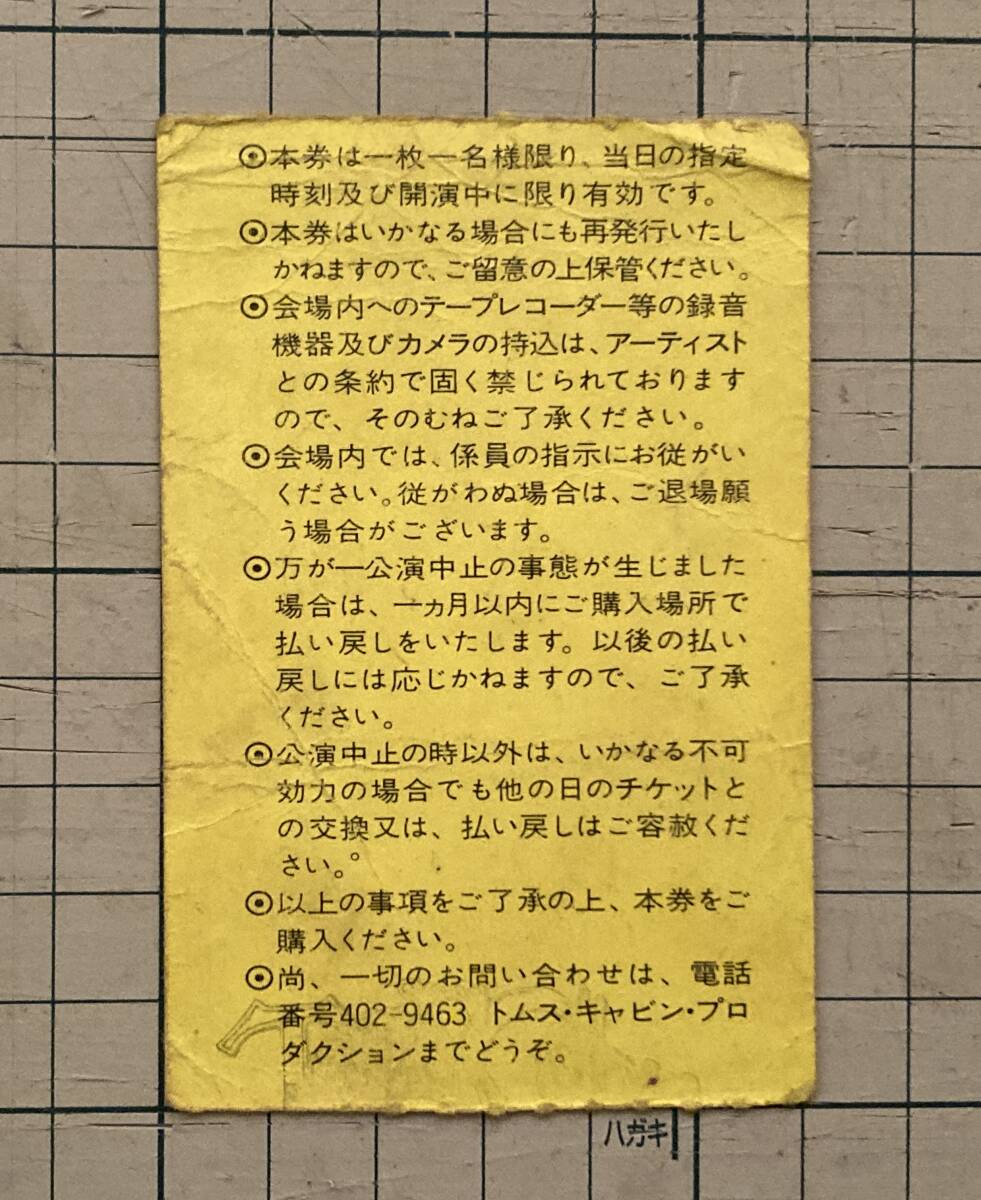 ⦿本券は一枚一名様限り、当日の指定
時刻及び開演中に限り有効です。
⦿本券はいかなる場合にも再発行いたし
かねますので、ご留意の上保管ください。
⦿会場内へのテープレコーダー等の録音
機器及びカメラの持込は、アーティスト
との条約で固く禁じられております
ので、そのむねご了承ください。
⦿会場内では、係員の指示にお従がい
ください。従がわぬ場合は、ご退場願
う場合がございます。
⦿万が一公演中止の事態が生じました
場合は、一ヵ月以内にご購入場所で
払い戻しをいたします。以後の払い
戻しには応じかねますので、ご了承
ください。
⦿公演中止の時以外は、いかなる不可
効力の場合でも他の日のチケットと
の交換又は、払い戻しはご容赦くだ
さい。°
⦿以上の事項をご了承の上、本券をご
購入ください。
⦿尚、一切のお問い合わせは、電話
番号402-9463 トムス・キャビン・プロ
ダクションまでどうぞ。
ハガキ